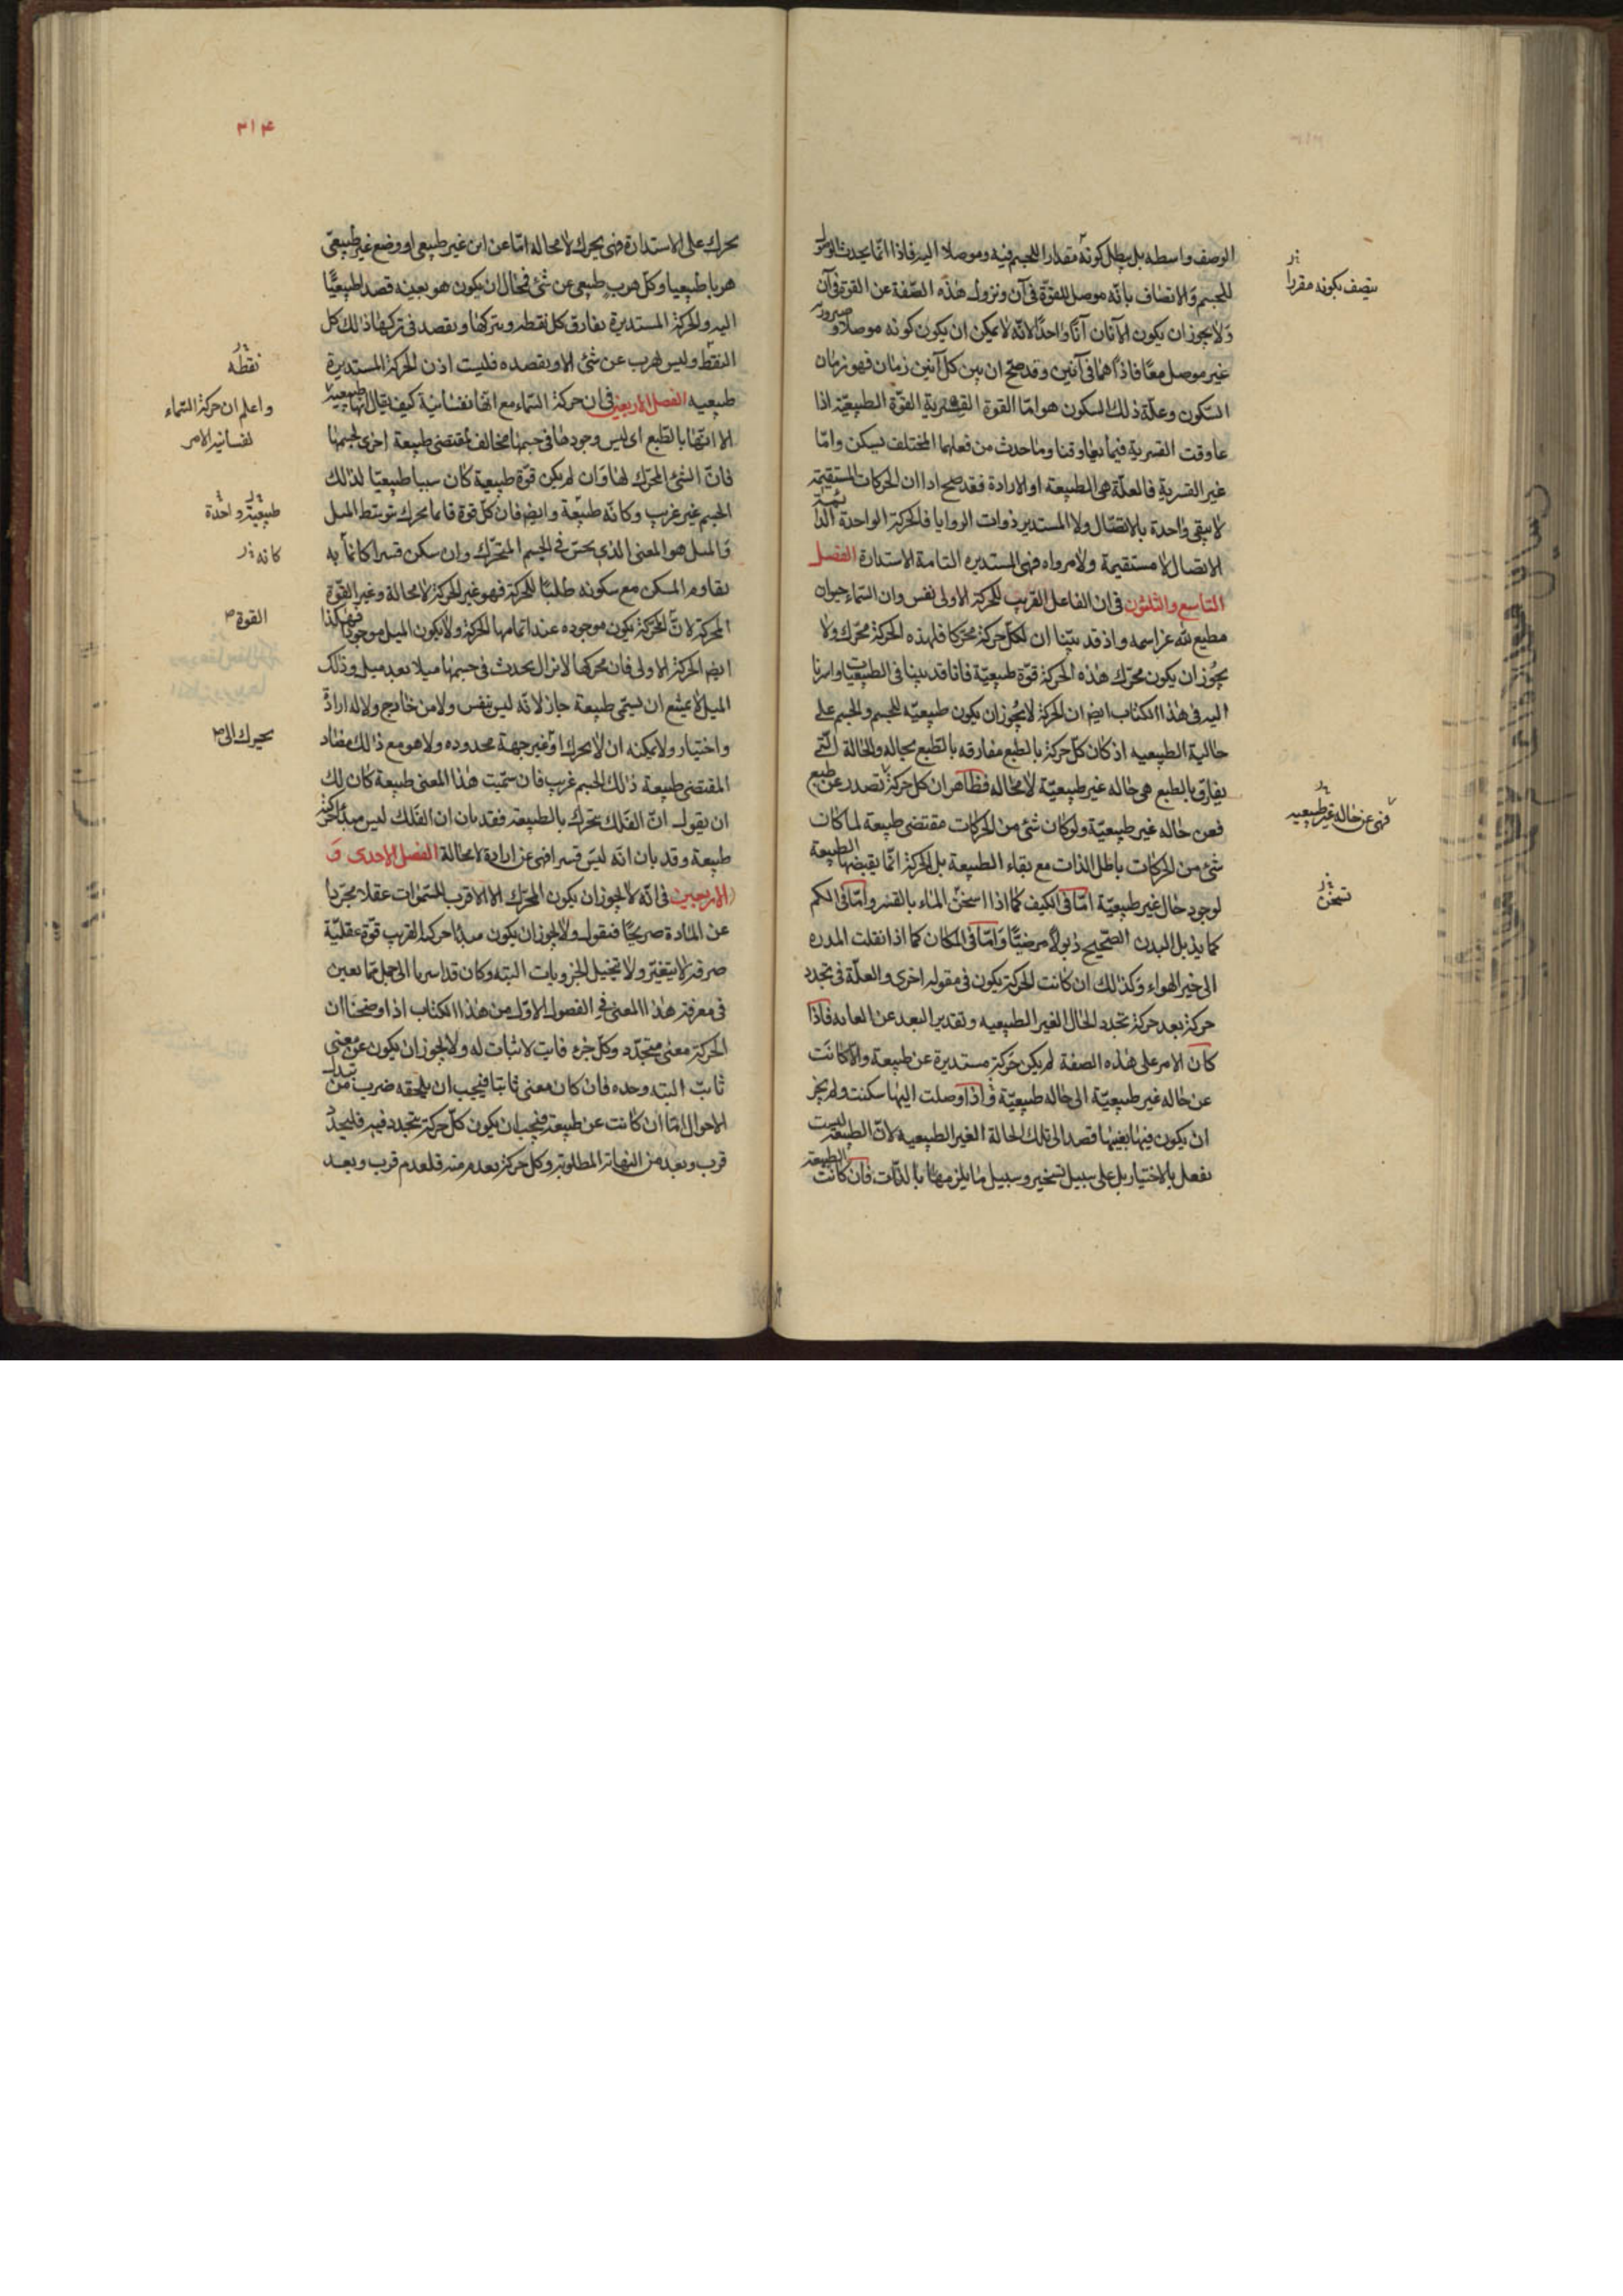 الوصف واسطه بل يبطل كونه مقدارا للجسم فيه وموصلا اليه فاذا انما يحدث
للجسم والاتصاف بانه موصل للقوة فى آن ونزول هذه الصفة عن القوة فى آن
ولا يجوز ان يكون الآنان آنا واحدا لانه لا يمكن ان يكون كونه موصلا وصيرورته
غير موصل معا فاذا هما فى آنين وقد صح ان بين كل آنين زمان فهو زمان
السكون وعلة ذلك السكون هو اما القوة القسرية القوة الطبيعية اذا
عاوقت القسرية فيما يعاوقنا وما حدث من فعلهما المختلف تسكن واما
غير القسرية فالعلة هى الطبيعة او الارادة فقد صح اذا ان الحركات المستقيمة
لا يبقى واحدة بالاتصال ولا المستدير ذوات الزوايا فالحركة الواحدة الدائمة
الاتصال لا مستقيمة ولا مزواه فهى المستديره التامة الاستدارة الفصل
التاسع والثلثون فى ان الفاعل القريب للحركة الاولى نفس وان السماء حيوان
مطيع لله عز اسمه واذ قد بينا ان لكل حركة محركا فلهذه الحركة محرك ولا
يجوز ان يكون محرك هذه الحركة قوة طبيعية فانا قد بينا فى الطبيعيات واشرنا
اليه فى هذا الكتاب ايضا ان الحركة لا يجوز ان يكون طبيعيه للجسم والجسم على
حالية الطبيعيه اذ كان كل حركة بالطبع مفارقه بالطبع بحاله والحالة التى
يفارق بالطبع هى حاله غير طبيعية لا محاله فظاهر ان كل حركة تصدر عن طبع
فعن حاله غير طبيعية ولو كان شئ من الحركات مقتضى طبيعة لما كان
شئ من الحركات باطل الذات مع بقاء الطبيعة بل الحركة انما يقيضها الطبيعة
لوجود حال غير طبيعية اما فى الكيف كما اذا اسخن الماء بالقسر واما فى الكم
كما يذبل البدن الصحيح ذبولا مرضيا واما فى المكان كما اذا نقلت المدره
الى خير الهواء وكذلك ان كانت الحركة يكون فى مقوله اخرى والعلة فى تجدد
حركة بعد حركة تجدد الحال الغير الطبيعيه وتقدير البعد عن الغايه فاذا
كان الامر على هذه الصفة لم يكن حركة مستديرة عن طبيعة والا كانت
عن حاله غير طبيعية الى حاله طبيعية واذا وصلت اليها سكنت ولم يجز
ان يكون فيها بعينها قصد الى تلك الحالة الغير الطبيعيه لان الطبيعة ليست
يفعل بالاختيار بل على سبيل تسخير وسبيل ما يلزمها بالذات فان كانت الطبيعة
يتصف بكونه مقررا
فهى عن حاله غير طبيعيه
تسخن
٣١٤
يحرك على الاستدارة فهى يحرك لا محالة اما عن اين غير طبيعى او وضع غير طبيعى
هربا طبيعيا وكل هرب طبيعى عن شئ فمحال ان يكون هو بعينه قصدا طبيعيا
اليه والحركة المستديرة يفارق كل نقطه ويتركها ويقصد فى تركها ذلك كل
النقط وليس يهرب عن شئ الا ويقصده فليست اذن الحركة المستديرة
طبيعيه الفصل الاربعين فى ان حركة السماء مع انها نفسانية كيف يقال انها طبيعية
الا انها بالطبع اى ليس وجودها فى جسمها مخالف لمقتضى طبيعة اخرى لجسمها
فان الشئ المحرك لها وان لم يكن قوة طبيعية كان سببا طبيعيا لذلك
الجسم غير غريب وكانه طبيعة وايضا فان كل قوة فانما محرك بتوسط الميل
والميل هو المعنى الذى يحس فى الجسم المتحرك وان سكن قسرا كانما به
يقاوم المسكن مع سكونه طلبا للحركة فهو غير الحركة لا محالة وغير القوة
المحركة لان الحركة يكون موجوده عند اتمامها الحركة ولا يكون الميل موجودا فهكذا
ايضا الحركة الاولى فان محركها لا يزال يحدث فى جسمها ميلا بعد ميل وذلك
الميل لا يمتنع ان يسمى طبيعة جاز لانه ليس بنفس ولا من خارج ولا له ارادة
واختيار ولا يمكنه ان لا يحرك او غير جهة محدوده ولا هو مع ذلك مضاد
المقتضى طبيعة ذلك الجسم غريب فان سميت هذا المعنى طبيعة كان لك
ان يقول ان الفلك يتحرك بالطبيعة فقد بان ان الفلك ليس مبدأ حركته
طبيعة وقد بان انه ليس قسرا فهى عن ارادة لا محالة الفصل الاحدى و
الاربعين فى انه لا يجوز ان يكون المحرك الا الاقرب للسموات عقلا مجردا
عن المادة صريحا فنقول ولا يجوز ان يكون مبدأ حركته القريب قوة عقلية
صرفه لا يتغير ولا تتخيل الجزويات البته وكان قد اشرنا الى جمل مما يعين
فى معرفة هذا المعنى فى الفصول الاول من هذا الكتاب اذ اوضحنا ان
الحركة معنى متجدد وكل جزء فايت لا ثبات له ولا يجوز ان يكون عن معنى
ثابت البته وحده فان كان معنى ثابتا فيجب ان يلحقه ضرب من تبدل
الاحوال اما ان كانت عن طبيعة فيجب ان يكون كل حركة تتجدد فيه فلتجدد
قرب وبعد من النهاية المطلوبة وكل حركة بعدم منه فلعدم قرب وبعد
نقطه
واعلم ان حركة السماء
نفسانيه الامر
طبيعية واحدة
كانه
القوة
يحرك الى